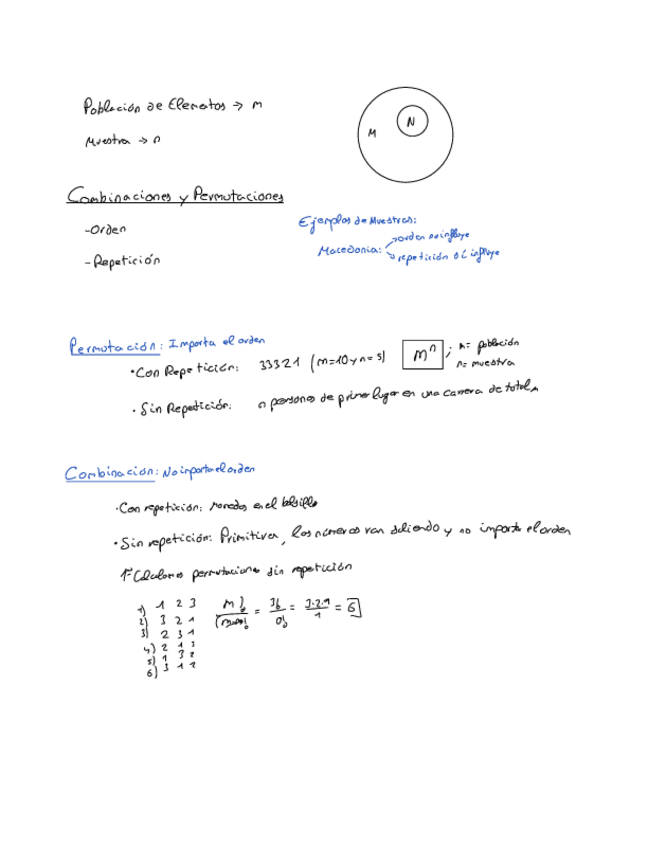 Población de Elementos → m
Muestra → n
M
N
Combinaciones y Permutaciones
-Orden
-Repetición
Ejemplos de Muestras:
Macedonia: → orden no influye
→ repetición sí influye
Permutación: Importa el orden
• Con Repetición: 33321 (m=10 y n=5) mⁿ ; m= población
n= muestra
• Sin Repetición: n personas de primer lugar en una carrera de total m
Combinación: No importa el orden
• Con repetición: Monedas en el bolsillo
• Sin repetición: Primitiva, los números van saliendo y no importa el orden
1º Calculamos permutaciones sin repetición
1) 1 2 3
2) 3 2 1
3) 2 3 1
4) 2 1 3
5) 1 3 2
6) 3 1 2
m! / (m-n)! = 3! / 0! = 3·2·1 / 1 = 6